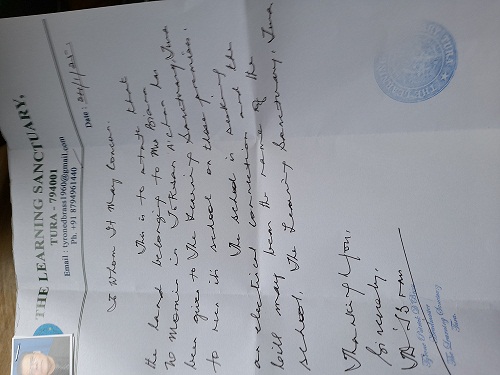 THE LEARNING SANCTUARY,
TURA - 794001
Email : tyronedbrass1960@gmail.com
Ph. +91 8794961440
Date :
To Whom It May Concern.
This is to state that
the land belonging to Mrs
No Momin in has
been given to The Learning Sanctuary, Tura
to run its school on these premises.
The school is seeking
an electrical connection and the
bill may bear the name of
school, The Learning Sanctuary, Tura
Thanking You,
Sincerely,
The Learning Sanctuary
Tura